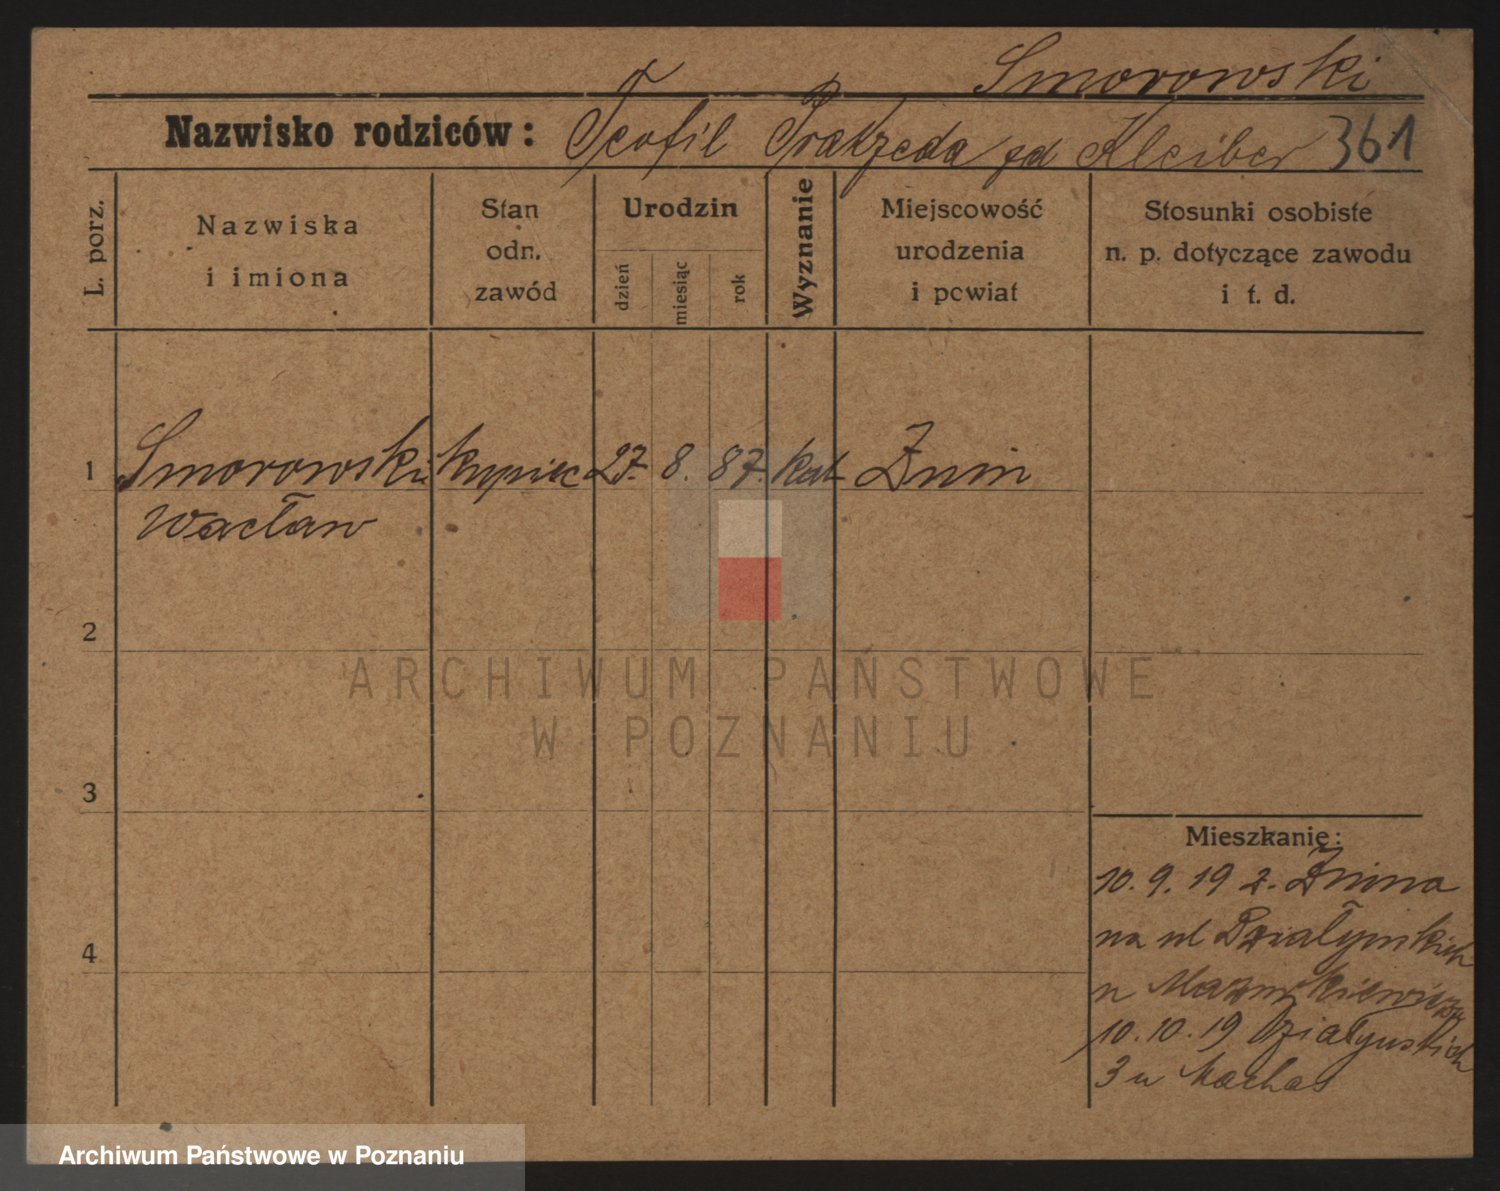 Smorowski
Nazwisko rodziców: Teofil Prakzeda zd Kleiber 361
L. porz.
Nazwiska
i imiona
Stan
odn.
zawód
Urodzin
dzień
miesiąc
rok
Wyznanie
Miejscowość
urodzenia
i powiat
Stosunki osobiste
n. p. dotyczące zawodu
i t. d.
1 Smorowski kupiec 27. 8. 87. kat Żnin
Wacław
2
3
4
Mieszkanie:
10. 9. 19 z. Żnina
na ul Działyńskich
u Mazurkiewicza
10. 10. 19 Działyńskich
3 u Machas
ARCHIWUM PAŃSTWOWE
W POZNANIU
Archiwum Państwowe w Poznaniu